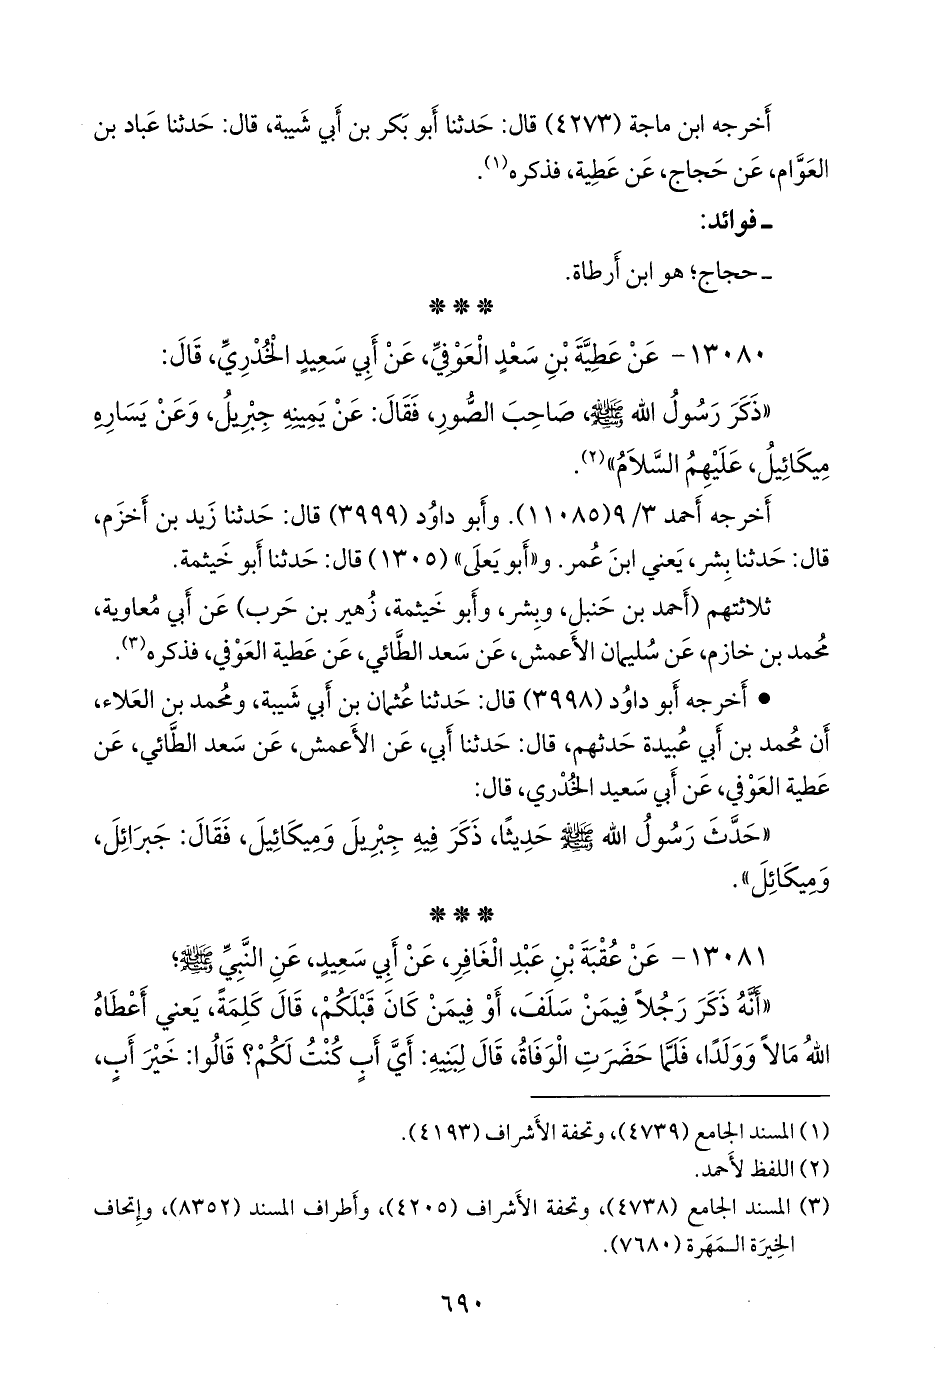 أَخرجه ابن ماجة (٤٢٧٣) قال: حَدثنا أَبو بَكر بن أَبي شَيبة، قال: حَدثنا عَباد بن
العَوَّام، عَن حَجاج، عَن عَطِية، فذكره(١).
ـ فوائد:
ـ حجاج؛ هو ابن أَرطاة.
* * *
١٣٠٨٠- عَنْ عَطِيَّةَ بْنِ سَعْدٍ الْعَوْفِيِّ، عَنْ أَبِي سَعِيدٍ الْخُدْرِيِّ، قَالَ:
«ذَكَرَ رَسُولُ الله ﷺ، صَاحِبَ الصُّورِ، فَقَالَ: عَنْ يَمِينِهِ جِبْرِيلُ، وَعَنْ يَسَارِهِ
مِيكَائِيلُ، عَلَيْهِمُ السَّلاَمُ»(٢).
أَخرجه أَحمد ٣/ ٩(١١٠٨٥). وأَبو داوُد (٣٩٩٩) قال: حَدثنا زَيد بن أَخزَم،
قال: حَدثنا بِشر، يَعني ابنَ عُمر. و«أَبو يَعلَى» (١٣٠٥) قال: حَدثنا أَبو خَيثمة.
ثلاثتهم (أَحمد بن حَنبل، وبِشر، وأَبو خَيثمة، زُهير بن حَرب) عَن أَبي مُعاوية،
مُحمد بن خازم، عَن سُليمان الأَعمش، عَن سَعد الطَّائي، عَن عَطية العَوْفي، فذكره(٣).
● أَخرجه أَبو داوُد (٣٩٩٨) قال: حَدثنا عُثمان بن أَبي شَيبة، ومُحمد بن العَلاء،
أَن مُحمد بن أَبي عُبيدة حَدثهم، قال: حَدثنا أَبي، عَن الأَعمش، عَن سَعد الطَّائي، عَن
عَطية العَوْفي، عَن أَبي سَعيد الخُدْري، قال:
«حَدَّثَ رَسُولُ الله ﷺ حَدِيثًا، ذَكَرَ فِيهِ جِبْرِيلَ وَمِيكَائِيلَ، فَقَالَ: جَبرَائِلَ،
وَمِيكَائِلَ».
* * *
١٣٠٨١- عَنْ عُقْبَةَ بْنِ عَبْدِ الْغَافِرِ، عَنْ أَبِي سَعِيدٍ، عَنِ النَّبِيِّ ﷺ؛
«أَنَّهُ ذَكَرَ رَجُلاً فِيمَنْ سَلَفَ، أَوْ فِيمَنْ كَانَ قَبْلَكُمْ، قَالَ كَلِمَةً، يَعني أَعْطَاهُ
اللهُ مَالاً وَوَلَدًا، فَلَمَّا حَضَرَتِ الْوَفَاةُ، قَالَ لِبَنِيهِ: أَيَّ أَبٍ كُنْتُ لَكُمْ؟ قَالُوا: خَيْرَ أَبٍ،
(١) المسند الجامع (٤٧٣٩)، وتحفة الأَشراف (٤١٩٣).
(٢) اللفظ لأَحمد.
(٣) المسند الجامع (٤٧٣٨)، وتحفة الأَشراف (٤٢٠٥)، وأَطراف المسند (٨٣٥٢)، وإِتحاف
الخِيرَة المَهَرة (٧٦٨٠).
٦٩٠